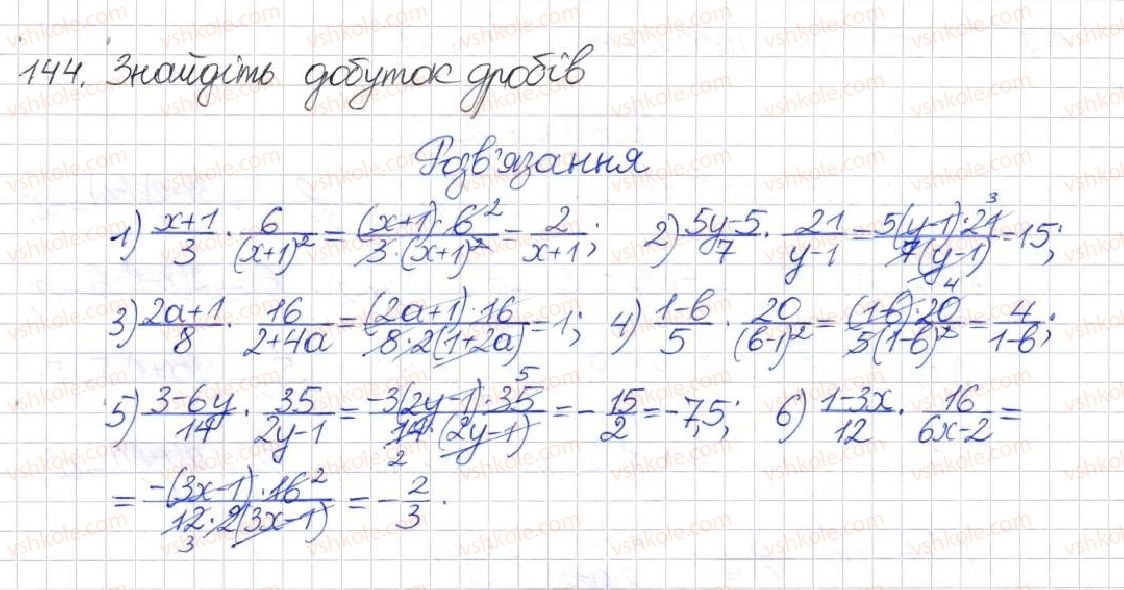 144. Знайдіть добуток дробів
Розв'язання
1) (x+1)/3 · 6/(x+1)² = ((x+1)·6 2)/(3·(x+1)²) = 2/(x+1); 2) (5y-5)/7 · 21/(y-1) = (5(y-1)·21 3)/(7(y-1)) = 15;
3) (2a+1)/8 · 16/(2+4a) = ((2a+1)·16)/(8·2(1+2a)) = 1; 4) (1-b)/5 · 20/(b-1)² = ((1-b)·20 4)/(5(1-b)²) = 4/(1-b);
5) (3-6y)/14 · 35/(2y-1) = (-3(2y-1)·35 5)/(14 2·(2y-1)) = -15/2 = -7,5; 6) (1-3x)/12 · 16/(6x-2) =
= (-(3x-1)·16 2)/(12 3·2(3x-1)) = -2/3.
vshkole.com